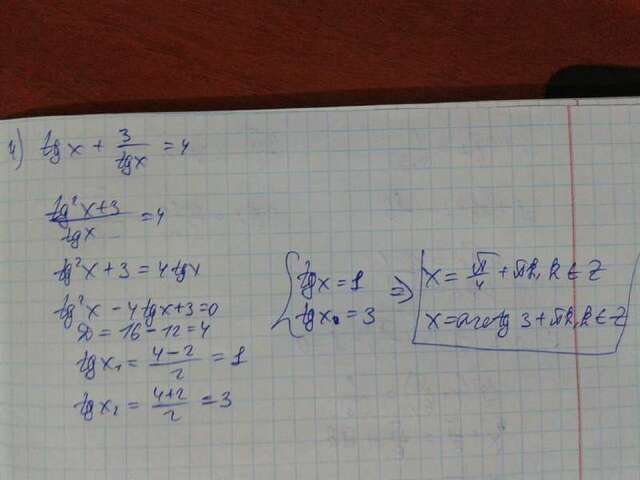 4) tg x + 3/tg x = 4
tg²x+3/tg x = 4
tg²x + 3 = 4 tg x
tg²x - 4 tg x + 3 = 0
D = 16 - 12 = 4
tg x₁ = 4-2/2 = 1
tg x₂ = 4+2/2 = 3
{ tg x = 1
tg x = 3 ⇒
x = π/4 + πk, k ∈ Z
x = arctg 3 + πk, k ∈ Z